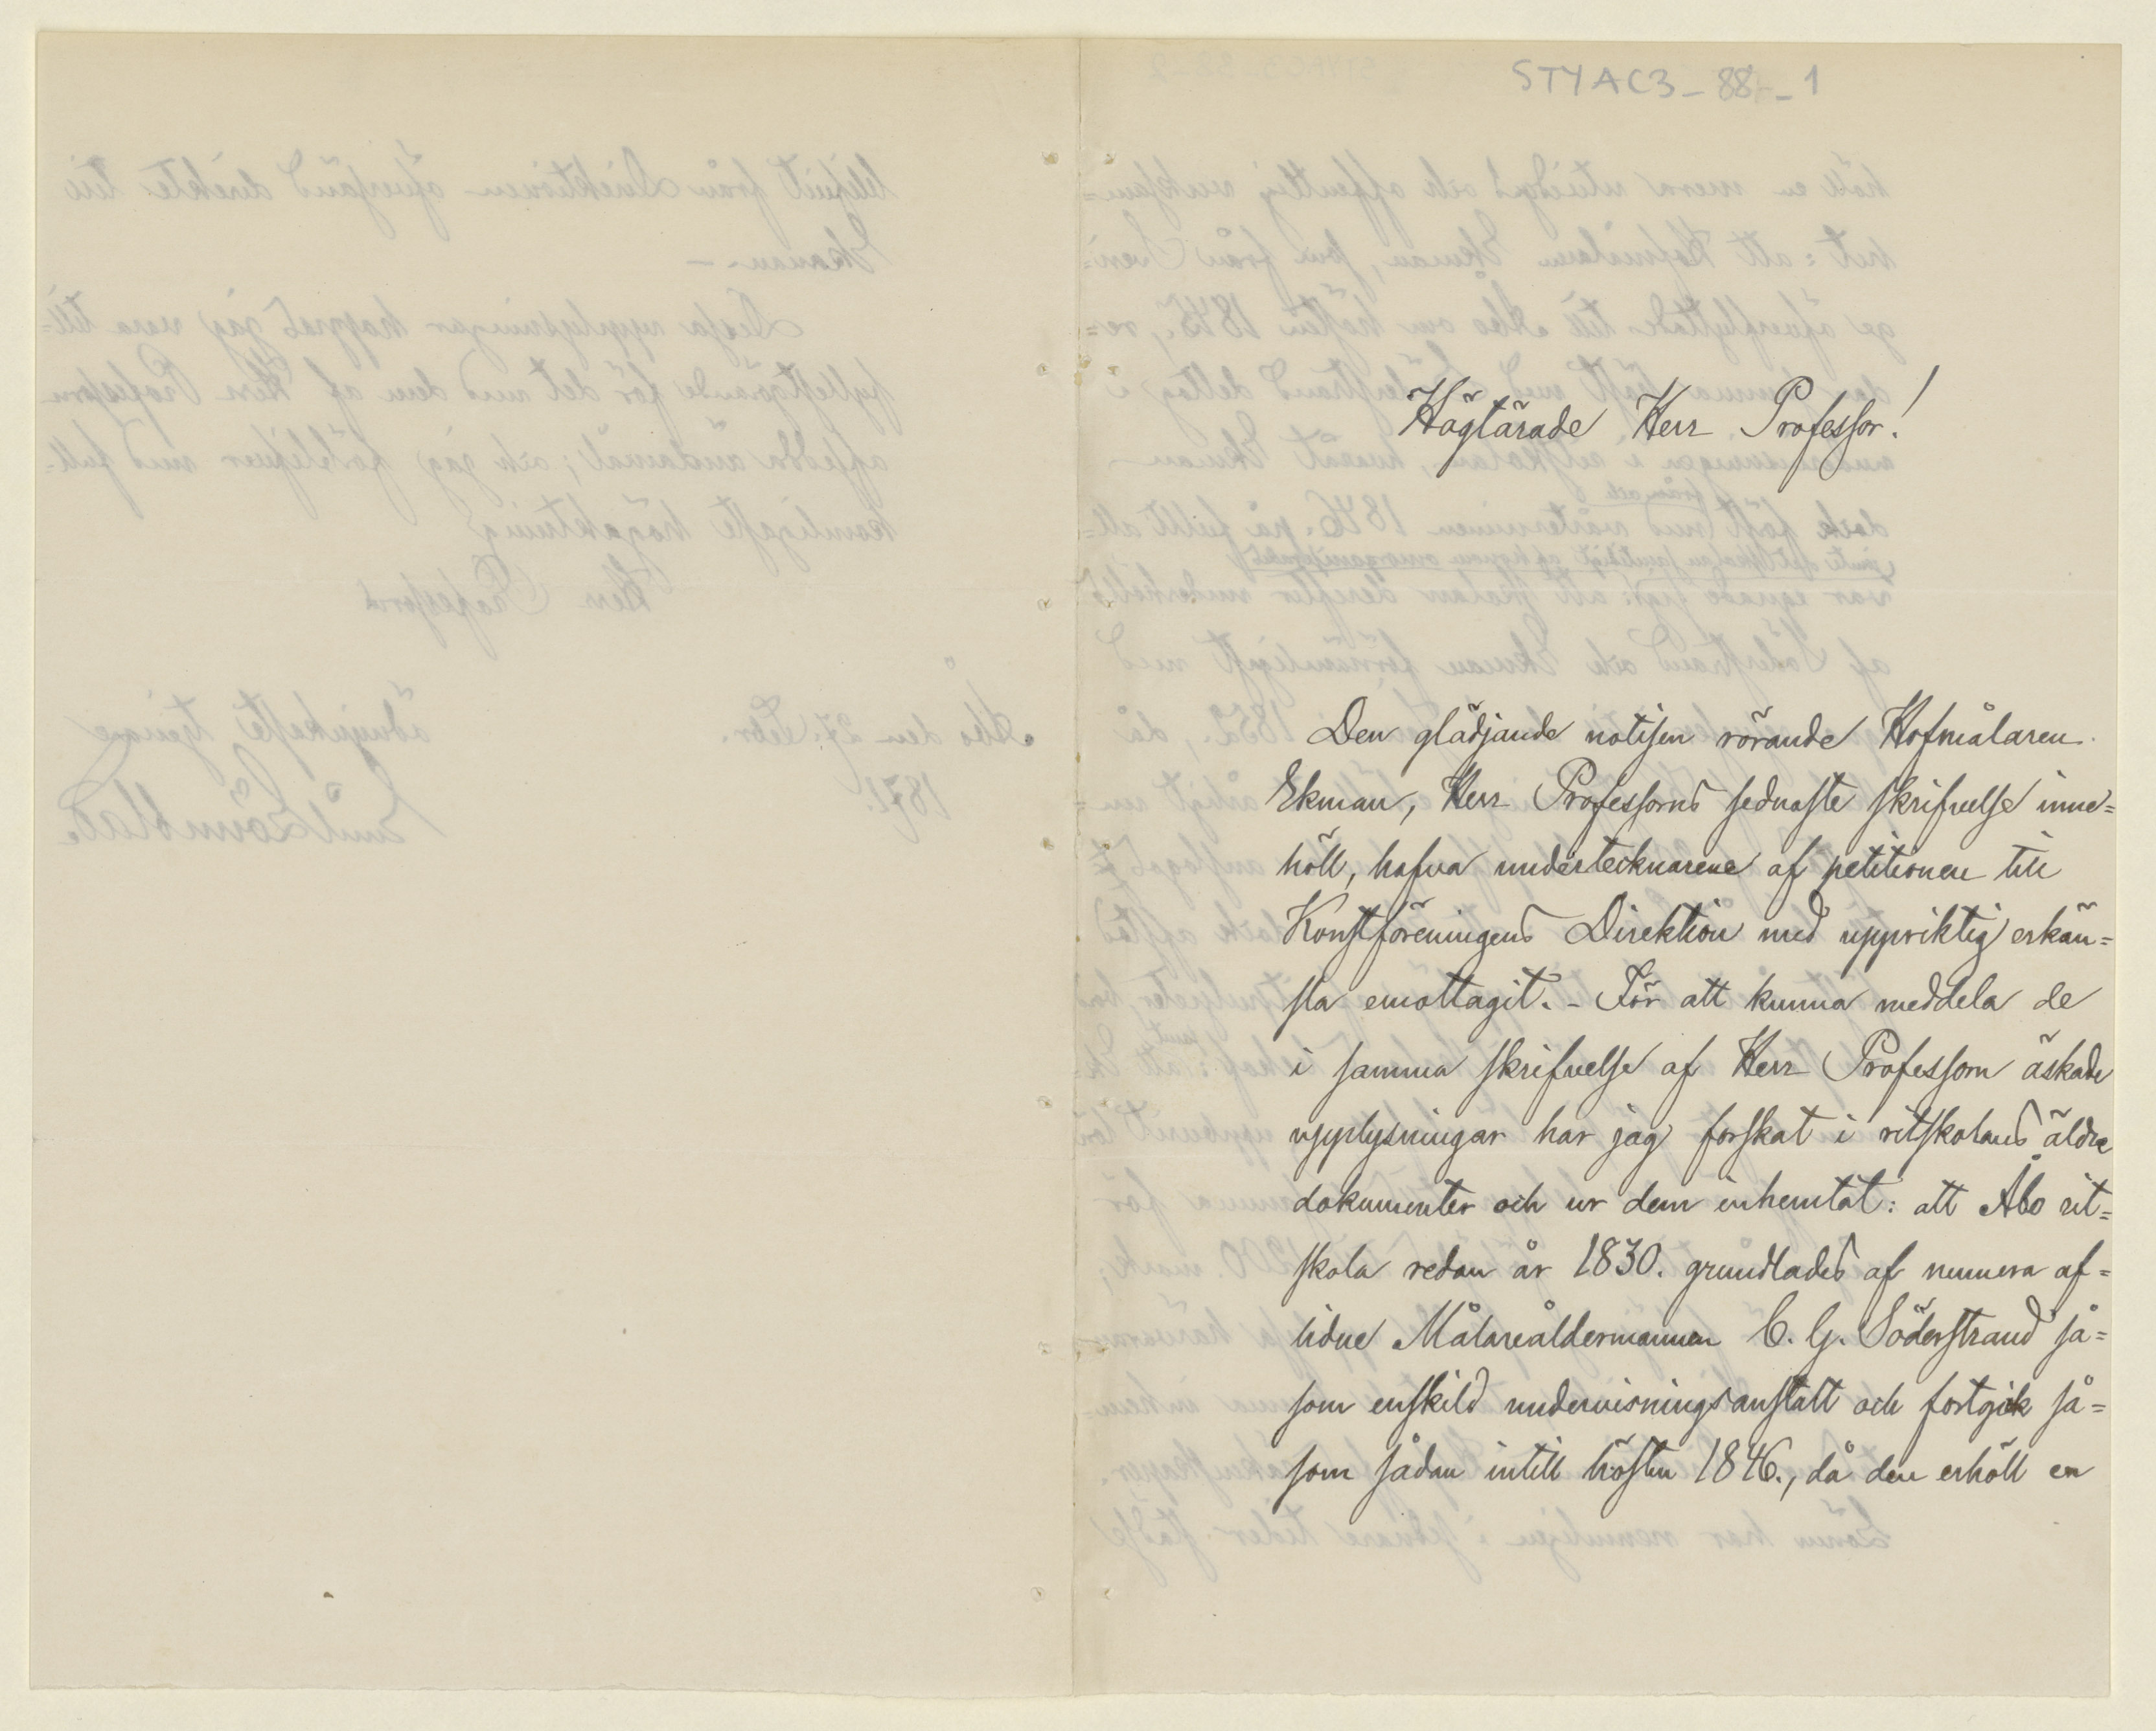 STYAC3-88-1
Högtärade Herr Professor!
Den glädjande notisen rörande Hofmålaren
Ekman, Herr Professorns sednaste skrifvelse inne=
höll, hafva undertecknarene af petitionen till
Konstföreningens Direktion med uppriktig erkän=
sla emottagit. - För att kunna meddela de
i samma skrifvelse af Herr Professorn äskade
upplysningar har jag forskat i ritskolans äldre
dokumenter och ur dem inhemtat: att Åbo rit=
skola redan år 1830. grundlades af numera af=
lidne Målareåldermannen C. G. Söderstrand så=
som enskild undervisningsanstalt och fortgick så=
som sådan intill hösten 1846., då den erhöll en